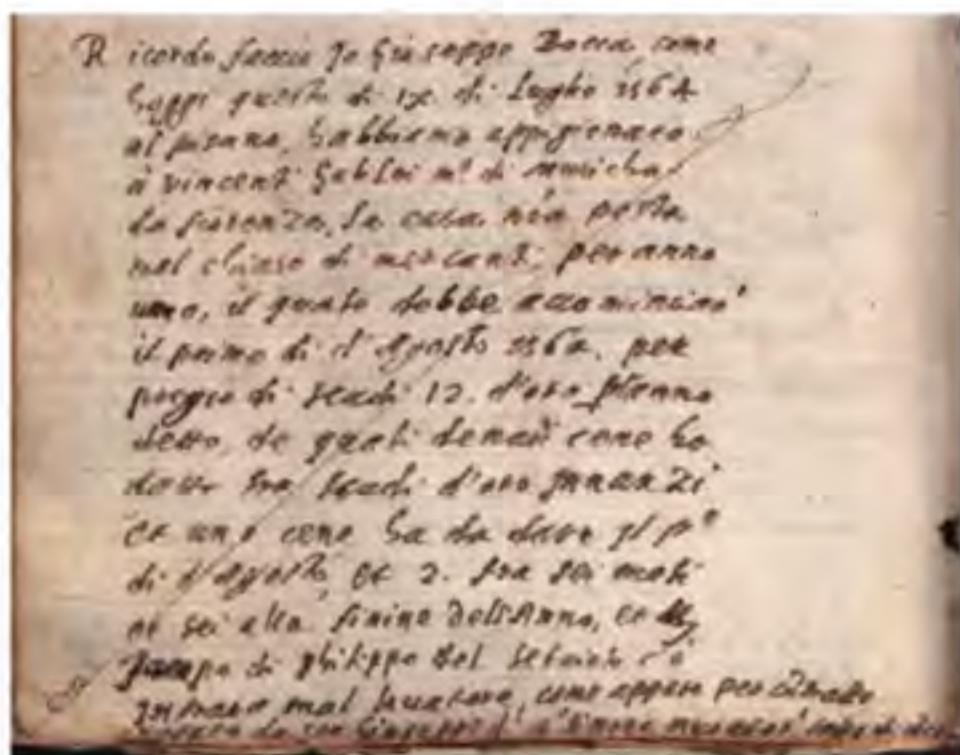 Ricordo faccio Jo Giuseppe Bocca, come
hoggi questo di ix. di Luglio 1564
al pisano, habbiamo appigionato
à vincenti Galilei m.º di musicha
da fiorenza, la casa nrã posta
nel chiasso di mercanti, per anno
uno, il quale debbe accominciar'
il primo di d'Agosto 1564. per
preggio di scudi 12. d'oro
detto, de quali denari cene ha
scudi d'oro Innanzi
et uno cene ha da dare il p.º
di d'Agosto, et 2. fra sei mesi
et sei alla finine dell'Anno, et
Jacopo di philippo del
come appare per